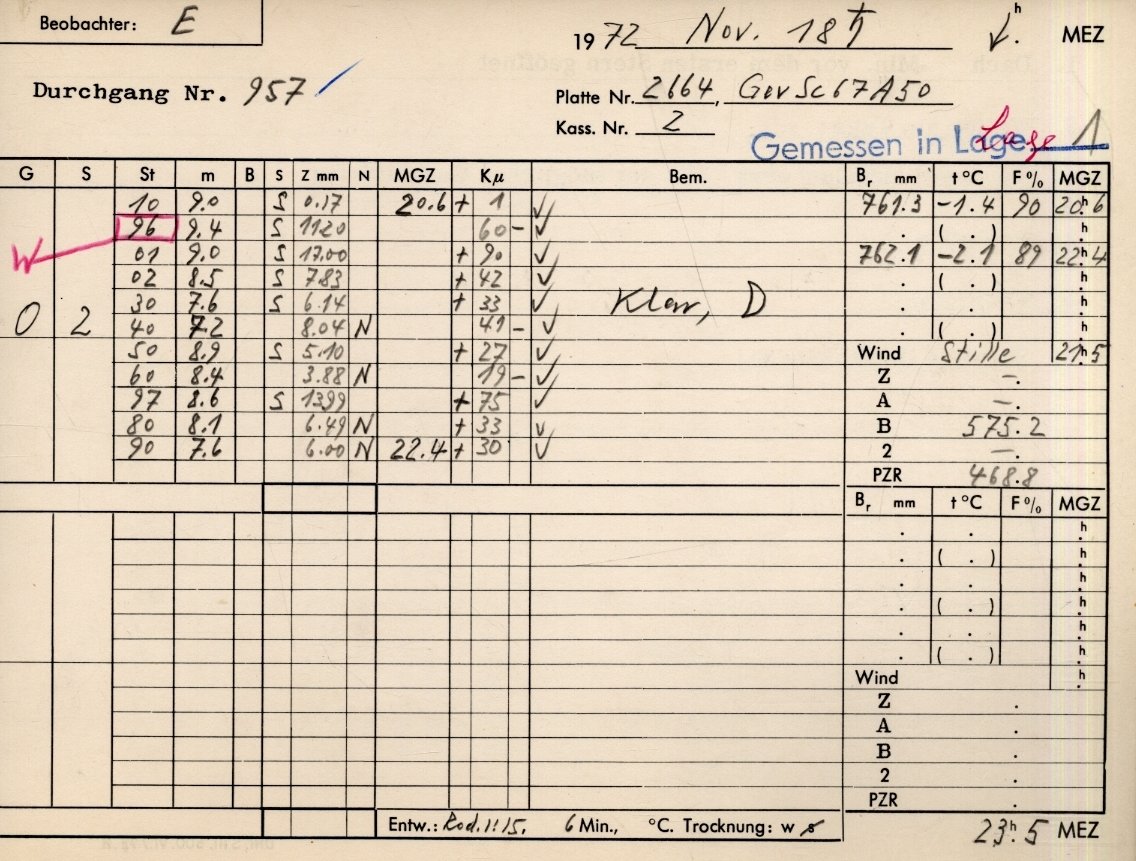 Beobachter: E
1972 Nov. 18 ♄ h. MEZ
Durchgang Nr. 957
Platte Nr. 2664, Gev Sc67A50
Kass. Nr. 2
Gemessen in Lage 1
G S St m B S Z mm N MGZ Kμ Bem. Br mm t °C F % MGZ
10 9.0 S 0.17 20.6 + 1 ✓ 761.3 -1.4 90 20h.6
96 9.4 S 11.20 60 - ✓ . ( . ) h.
W 01 9.0 S 17.00 + 90 ✓ 762.1 -2.1 89 22h.4
02 8.5 S 7.83 + 42 ✓ . ( . ) h.
0 2 30 7.6 S 6.14 + 33 ✓ Klar, D . . h.
40 7.2 8.04 N 41 - ✓ . ( . ) h.
50 8.9 S 5.10 + 27 ✓ Wind Stille 21h.5
60 8.4 3.88 N 19 - ✓ Z —.
97 8.6 S 13.99 + 75 ✓ A —.
80 8.1 6.49 N + 33 ✓ B 575.2
90 7.6 6.00 N 22.4 + 30 ✓ 2 —.
PZR 468.8
Br mm t °C F % MGZ
. . h.
. ( . ) h.
. . h.
. ( . ) h.
. . h.
. ( . ) h.
Wind h.
Z .
A .
B .
2 .
PZR .
Entw.: Rod. 1:15, 6 Min., °C. Trocknung: w s 23h.5 MEZ